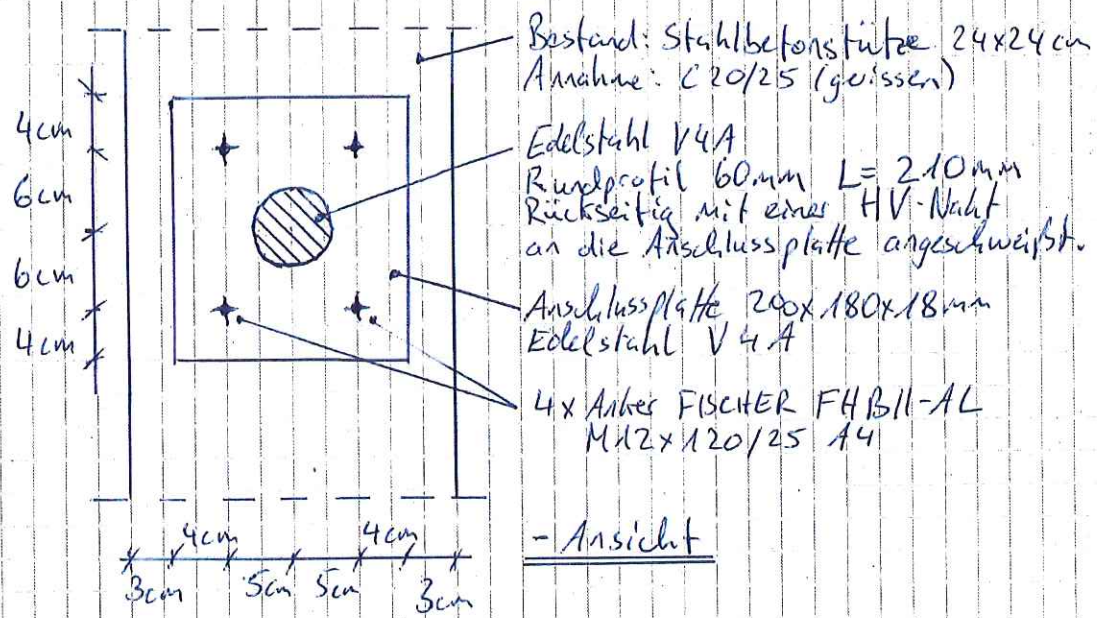 Bestand: Stahlbetonstütze 24x24 cm
Annahme: C20/25 (gerissen)
Edelstahl V4A
Rundprofil 60mm L= 210mm
Rückseitig mit einer HV-Naht
an die Anschlussplatte angeschweißt.
Anschlussplatte 200x180x18mm
Edelstahl V4A
4x Anker FISCHER FHB II-AL
M12x120/25 A4
- Ansicht
4cm
6cm
6cm
4cm
4cm
4cm
3cm
5cm
5cm
3cm